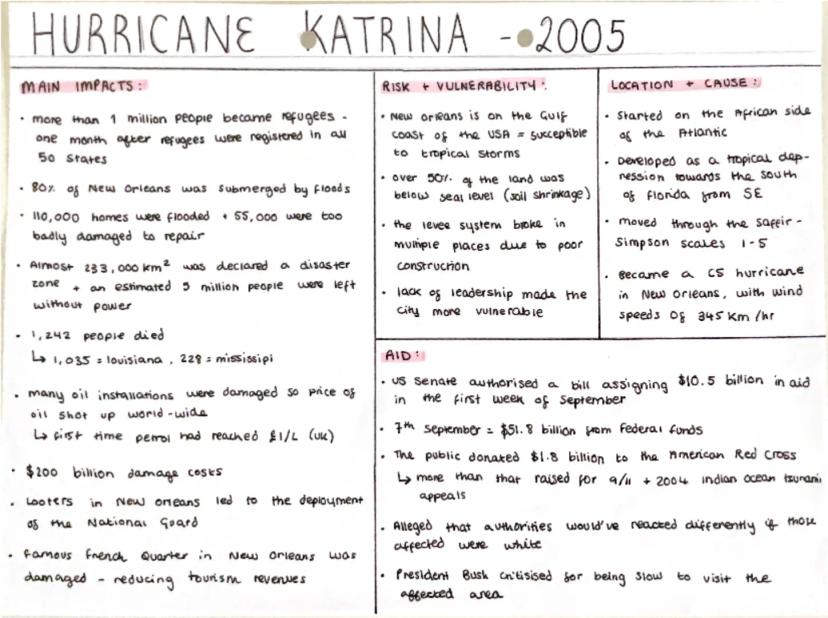 HURRICANE KATRINA - 2005
MAIN IMPACTS:
• more than 1 million people became refugees -
one month after refugees were registered in all
50 states
• 80% of New Orleans was submerged by floods
• 110,000 homes were flooded + 55,000 were too
badly damaged to repair
• Almost 233,000 km² was declared a disaster
zone + an estimated 5 million people were left
without power
• 1,242 people died
↳ 1,035 = louisiana, 228 = mississipi
• many oil installations were damaged so price of
oil shot up world-wide
↳ first time petrol had reached £1/L (UK)
• $200 billion damage costs
• Looters in New Orleans led to the deployment
of the National Guard
• famous French Quarter in New Orleans was
damaged - reducing tourism revenues
RISK + VULNERABILITY:
• New Orleans is on the Gulf
coast of the USA = succeptible
to tropical storms
• over 50% of the land was
below seal level (soil shrinkage)
• the levee system broke in
multiple places due to poor
construcrion
• lack of leadership made the
city more vulnerable
LOCATION + CAUSE:
• Started on the African side
of the Atlantic
• Developed as a tropical dep-
ression towards the south
of florida from SE
• moved through the saffir-
Simpson scales 1-5
• Became a C5 hurricane
in New Orleans, with wind
speeds of 345 km/hr
AID:
• US Senate authorised a bill assigning $10.5 billion in aid
in the first week of September
• 7th september = $51.8 billion from Federal funds
• The public donated $1.8 billion to the American Red Cross
↳ more than that raised for 9/11 + 2004 indian ocean tsunami
appeals
• Alleged that authorities would've reacted differently if those
affected were white
• President Bush critisised for being slow to visit the
affected area